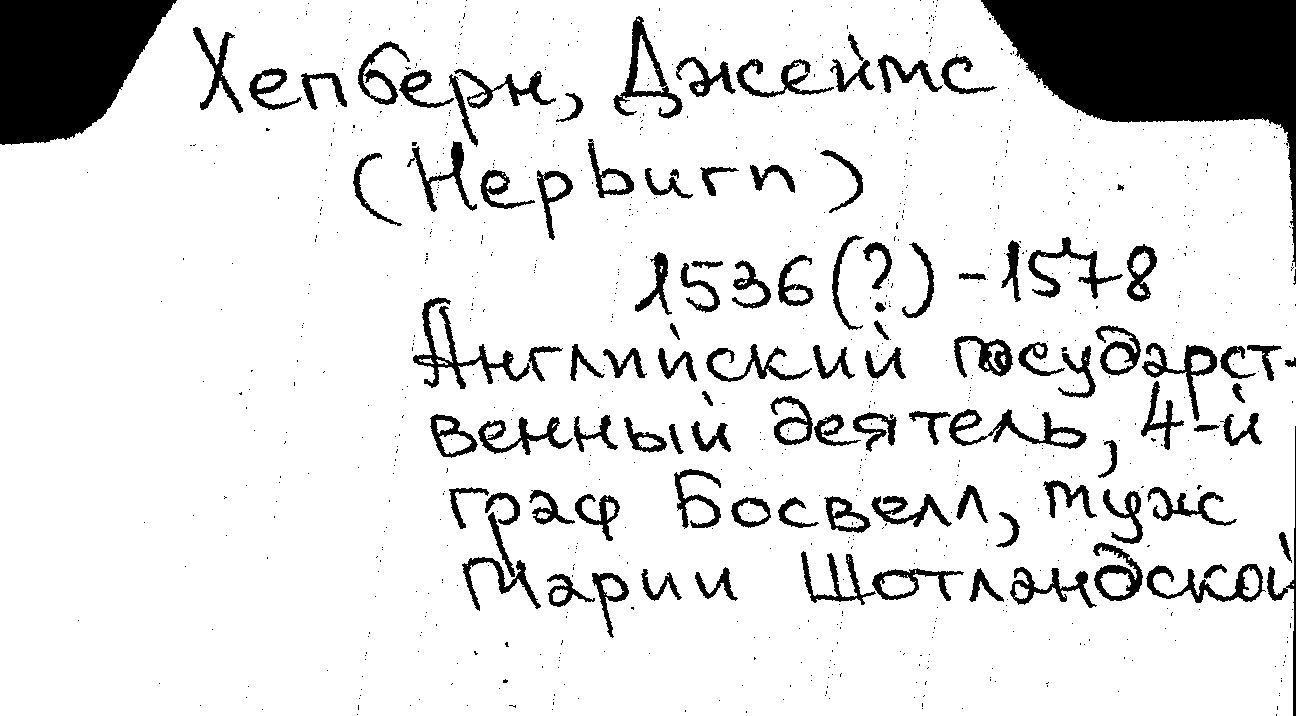 Хепберн, Джеймс
(Hepburn)
1536(?)-1578
Английский государст-
венный деятель, 4-й
граф Босвелл, муж
Марии Шотландской